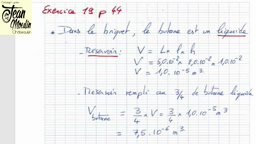 Jean
Moulin
Exercice 19 p 44
• Dans le briquet, le butane est un liquide
- Réservoir : V = L × l × h
V = 5,0.10⁻² × 2,0.10⁻² × 1,0.10⁻²
V = 1,0.10⁻⁵ m³
- Réservoir rempli aux 3/4 de butane liquide
V butane = 3/4 × V = 3/4 × 1,0.10⁻⁵ m³
= 7,5.10⁻⁶ m³